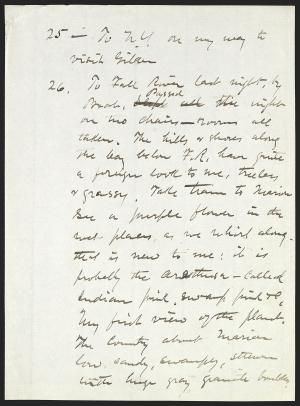 25 — To N.Y. on my way to
visit Gilder
26. To Fall River last night, by
boat, Passed all the night
on two chairs — rooms all
taken. The hills & shores along
the bay below F.R. have quite
a foreign look to me, treeless
& grassy. Take train to Marion
See a purple flower in the
wet places, as we whirl along
that is new to me; it is
probably the arethusa — called
Indian pink, swamp pink &c.
My first view of the plant.
The country about Marion
low, sandy, swampy, strewn
with huge gray granite boulders